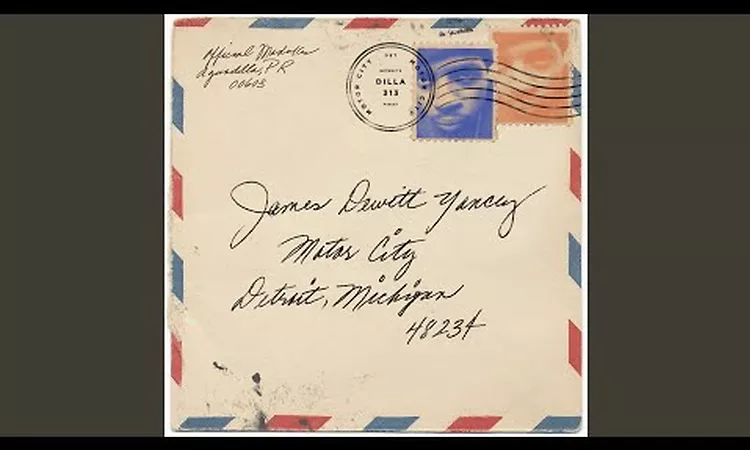 Official Medallo
Aguadilla, PR
00603
MOTOR CITY
MOTOR CITY
DILLA
313
James Dewitt Yancey
Motor City
Detroit, Michigan
48234